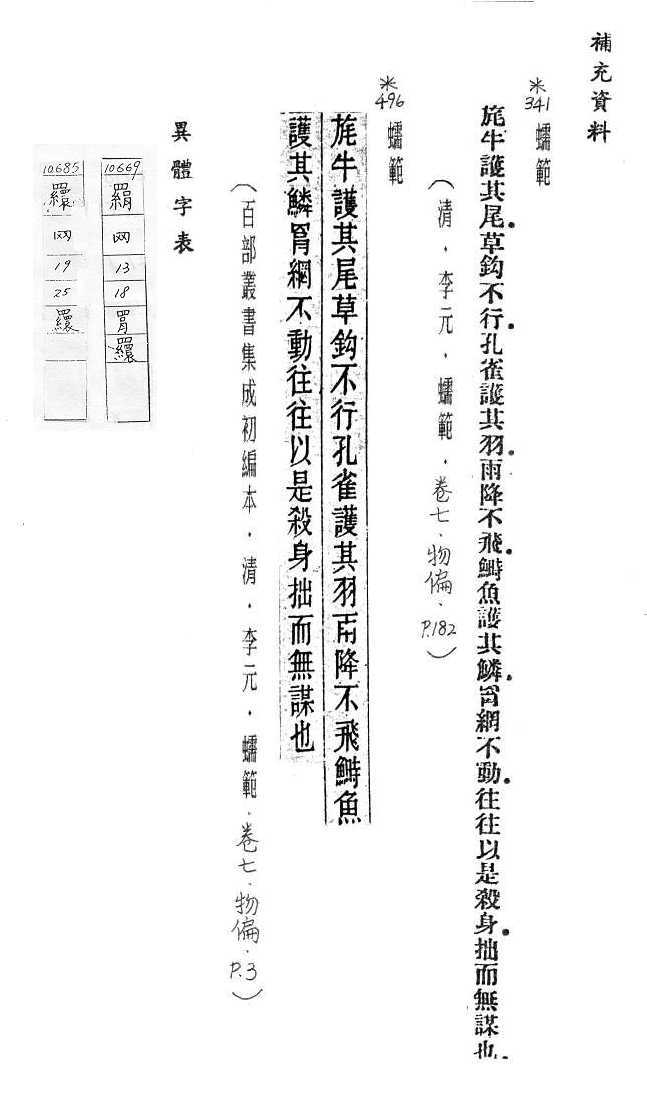 補充資料
*341 蠕範
旄牛護其尾草鈎不行孔雀護其羽雨降不飛鰣魚護其鱗罥網不動往往以是殺身拙而無謀也
(清.李元.蠕範.卷七.物偏.P.182)
*496 蠕範
旄牛護其尾草鈎不行孔雀護其羽雨降不飛鰣魚
護其鱗罥網不動往往以是殺身拙而無謀也
(百部叢書集成初編本.清.李元.蠕範.卷七.物偏.P.3)
異體字表
10669
羂
网
13
18
罥
羂
10685
网
19
25